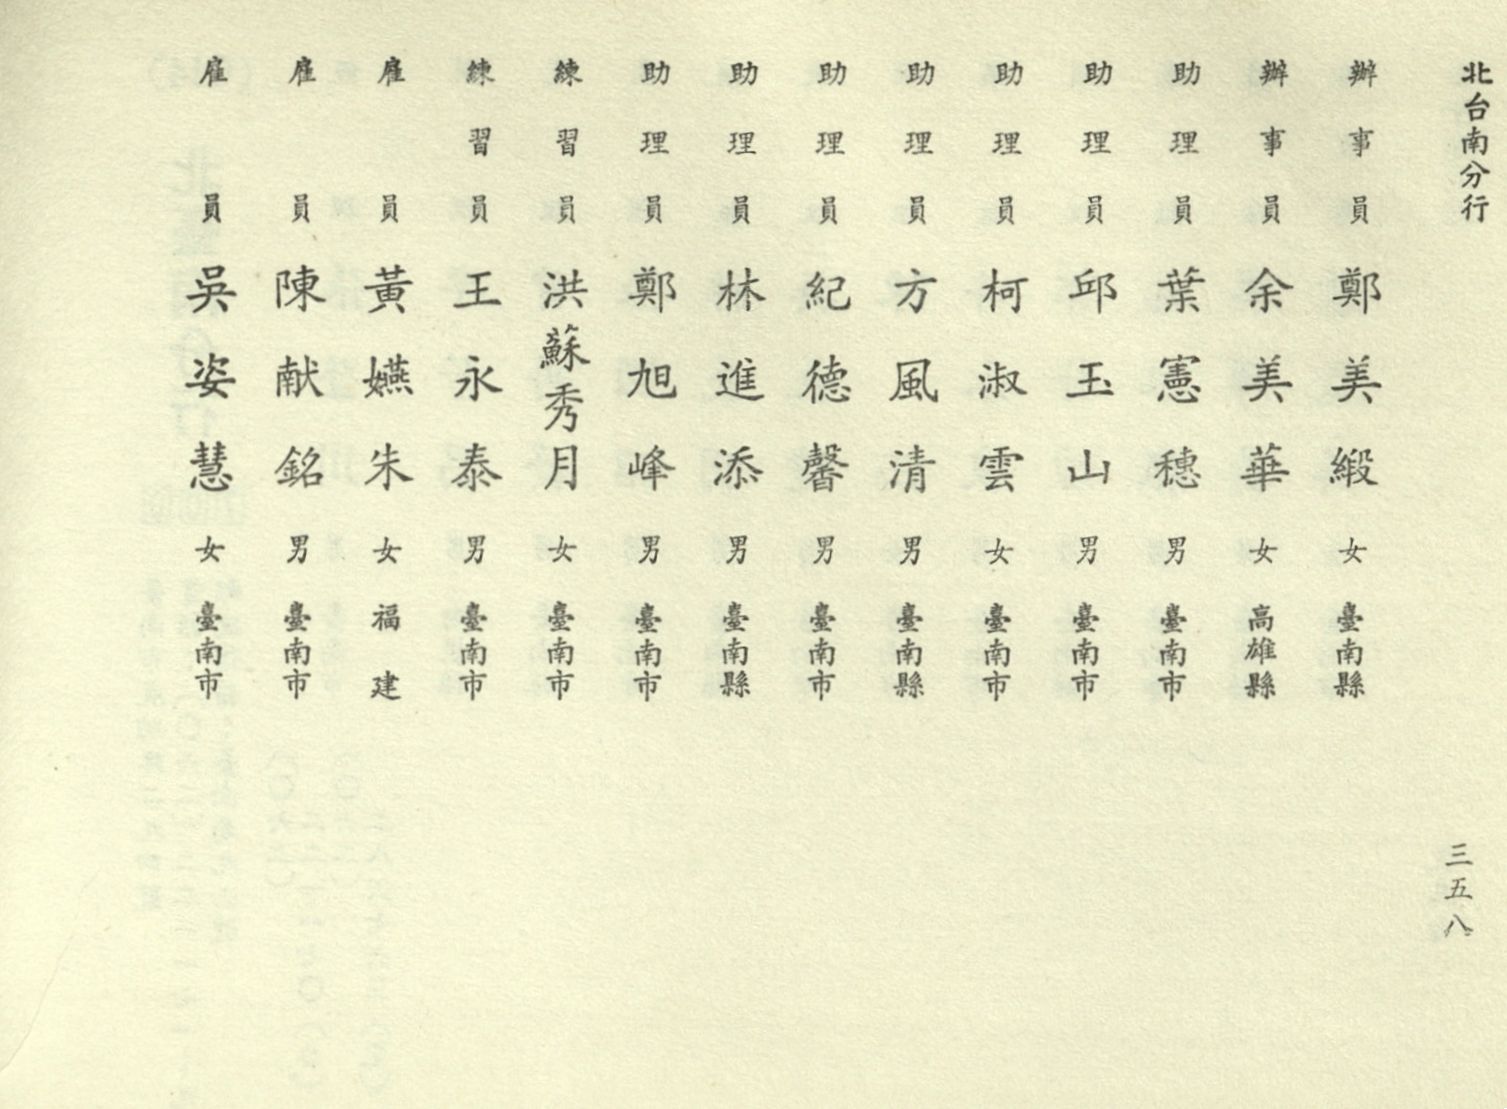 北台南分行
三五八
辦事員 鄭美緞 女 臺南縣
辦事員 余美華 女 高雄縣
助理員 葉憲穗 男 臺南市
助理員 邱玉山 男 臺南市
助理員 柯淑雲 女 臺南市
助理員 方風清 男 臺南縣
助理員 紀德馨 男 臺南市
助理員 林進添 男 臺南縣
助理員 鄭旭峰 男 臺南市
練習員 洪蘇秀月 女 臺南市
練習員 王永泰 男 臺南市
雇員 黃嬿朱 女 福建
雇員 陳献銘 男 臺南市
雇員 吳姿慧 女 臺南市